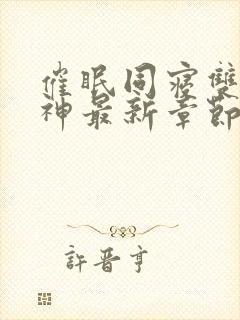 催眠同寝雙
神最新章節
許晋亨